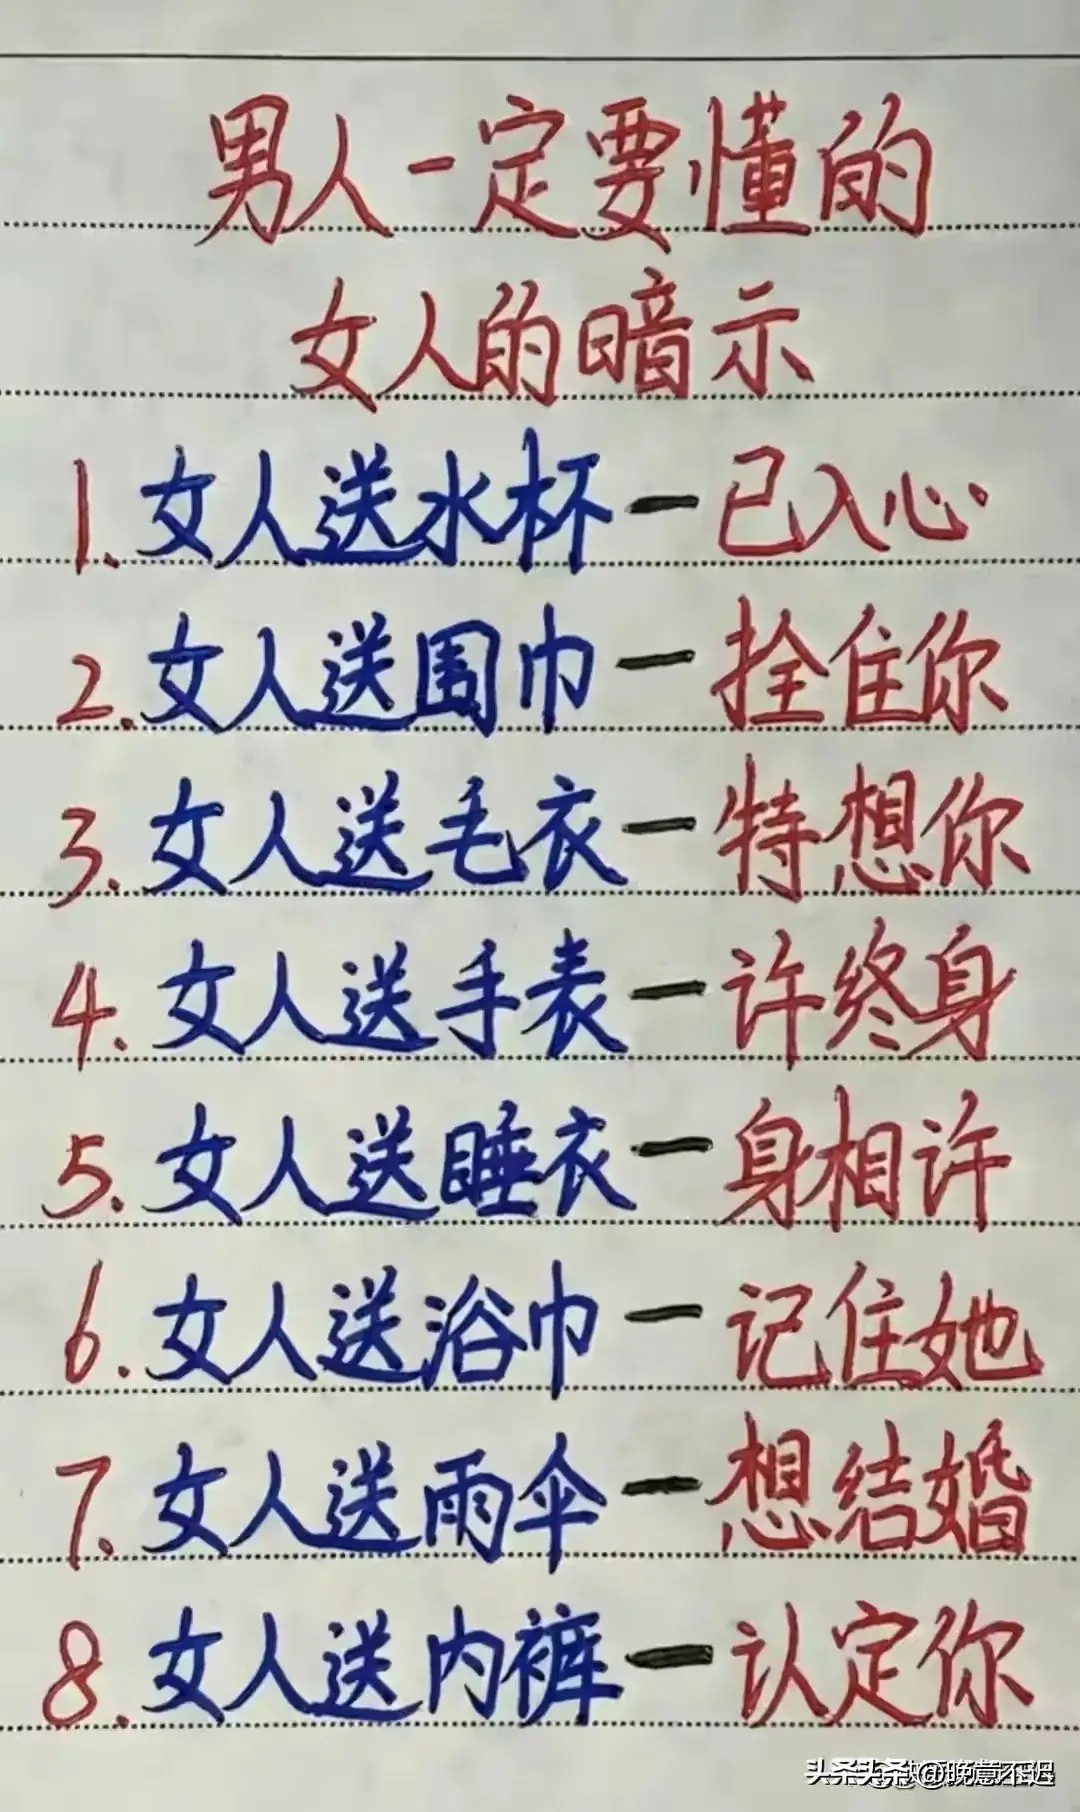 男人一定要懂的
女人的暗示
1.女人送水杯一已入心
2.女人送围巾一拴住你
3.女人送毛衣一特想你
4.女人送手表一许终身
5.女人送睡衣一身相许
6.女人送浴巾一记住她
7.女人送雨伞一想结婚
8.女人送内裤一认定你
头条 @晚意不迟